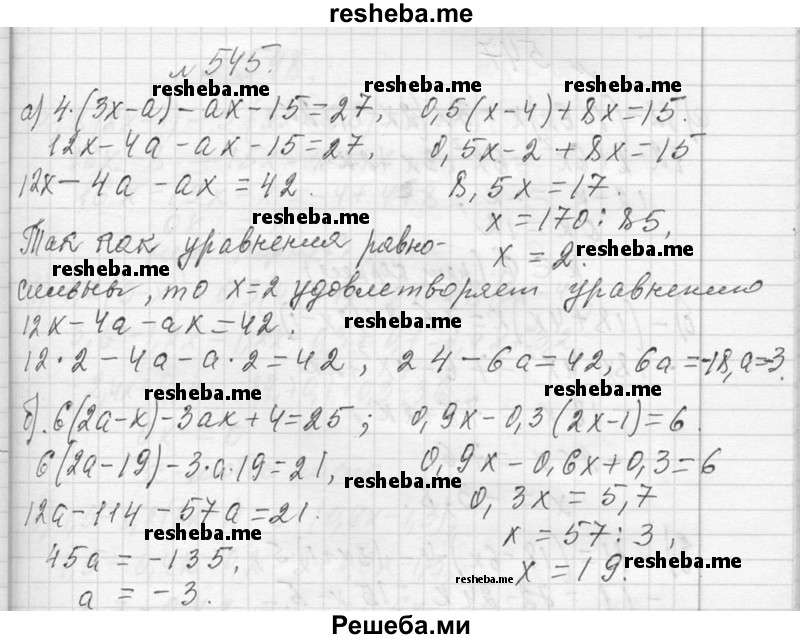 resheba.me
№ 545.
resheba.me resheba.me
а) 4·(3x-a)-ax-15=27, 0,5(x-4)+8x=15.
12x-4a-ax-15=27, 0,5x-2+8x=15
12x-4a-ax=42. 8,5x=17.
resheba.me x=170:85,
Так как уравнения равно- x=2. resheba.me
resheba.me
сильны, то x=2 удовлетворяет уравнению
12x-4a-ax=42. resheba.me
12·2-4a-a·2=42, 24-6a=42, 6a=-18, a=-3.
resheba.me resheba.me
б). 6(2a-x)-3ax+4=25; 0,9x-0,3(2x-1)=6.
6(2a-19)-3·a·19=21, 0,9x-0,6x+0,3=6
resheba.me
12a-114-57a=21. 0,3x=5,7
resheba.me x=57:3,
45a=-135, x=19. resheba.me
resheba.me
a=-3.
Решеба.ми